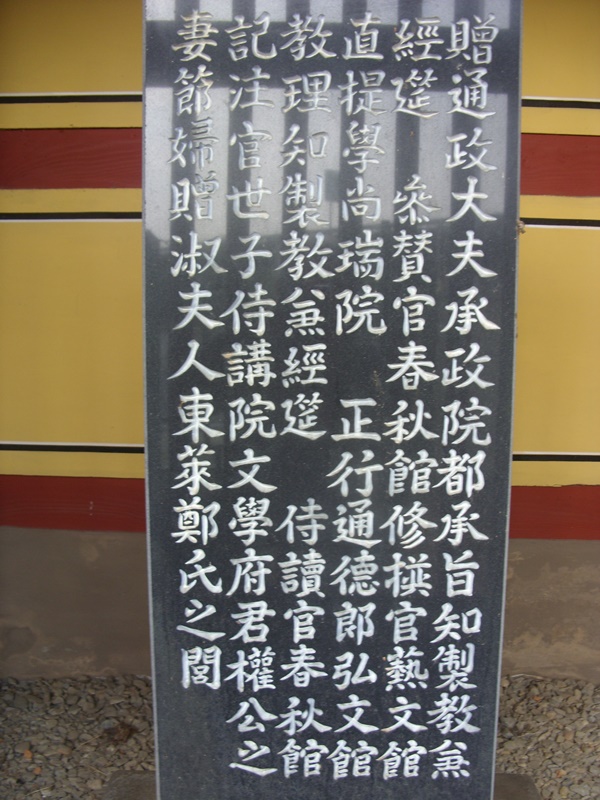 贈通政大夫承政院都承旨知製敎兼
經筵 叅贊官春秋館修撰官藝文館
直提學尚瑞院 正行通德郎弘文館
敎理知製敎兼經筵 侍讀官春秋館
記注官世子侍講院文學府君權公之
妻節婦贈淑夫人東萊鄭氏之閭